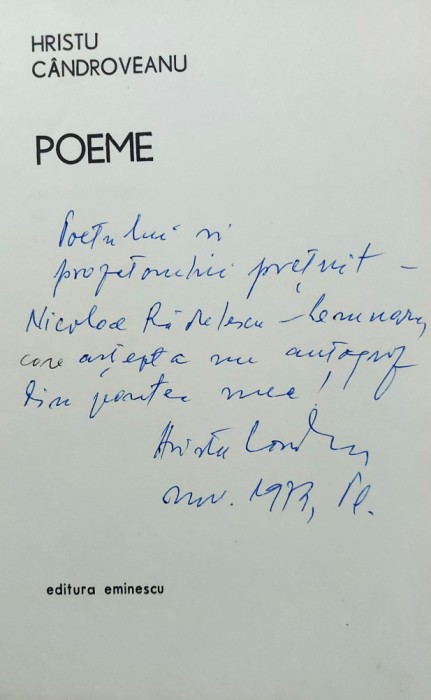 HRISTU
CÂNDROVEANU
POEME
Poetului și
prozatorului prețuit –
Nicolae Rădulescu – Lemnaru,
care așteptă un autograf
din partea mea!
Hristu Cândro
nov. 1973,
editura eminescu